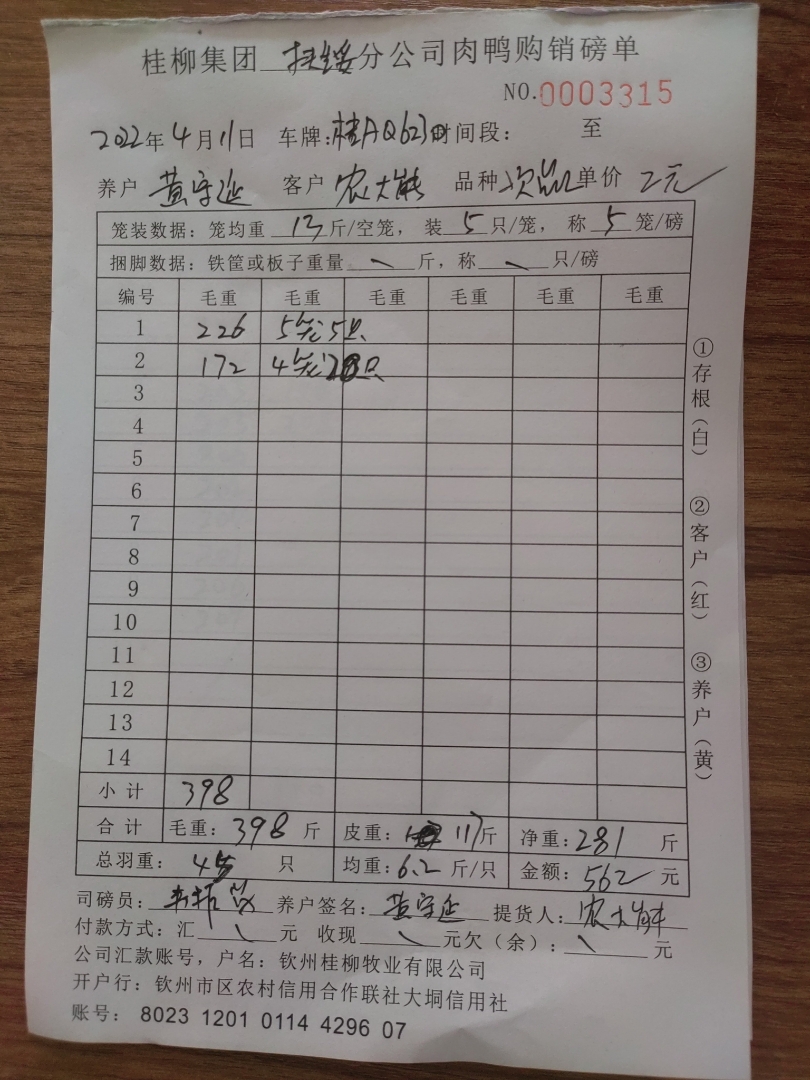 桂柳集团 扶绥 分公司肉鸭购销磅单
NO.0003315
2022年4月11日 车牌:桂AQ623 时间段: 至
养户 黄守延 客户 农大能 品种 次品 单价 2元
笼装数据: 笼均重 13 斤/空笼, 装 5 只/笼, 称 5 笼/磅
捆脚数据: 铁筐或板子重量 斤,称 只/磅
编号 毛重 毛重 毛重 毛重 毛重 毛重
1 226 5笼5只
2 172 4笼 只
3
4
5
6
7
8
9
10
11
12
13
14
小计 398
合计 毛重: 398 斤 皮重: 117斤 净重:281 斤
总羽重: 45 只 均重:6.2 斤/只 金额:562 元
司磅员: 养户签名: 黄守延 提货人: 农大能
付款方式: 汇 元 收现 元欠(余): 元
公司汇款账号,户名: 钦州桂柳牧业有限公司
开户行: 钦州市区农村信用合作联社大垌信用社
账号: 8023 1201 0114 4296 07
①存根(白)
②客户(红)
③养户(黄)